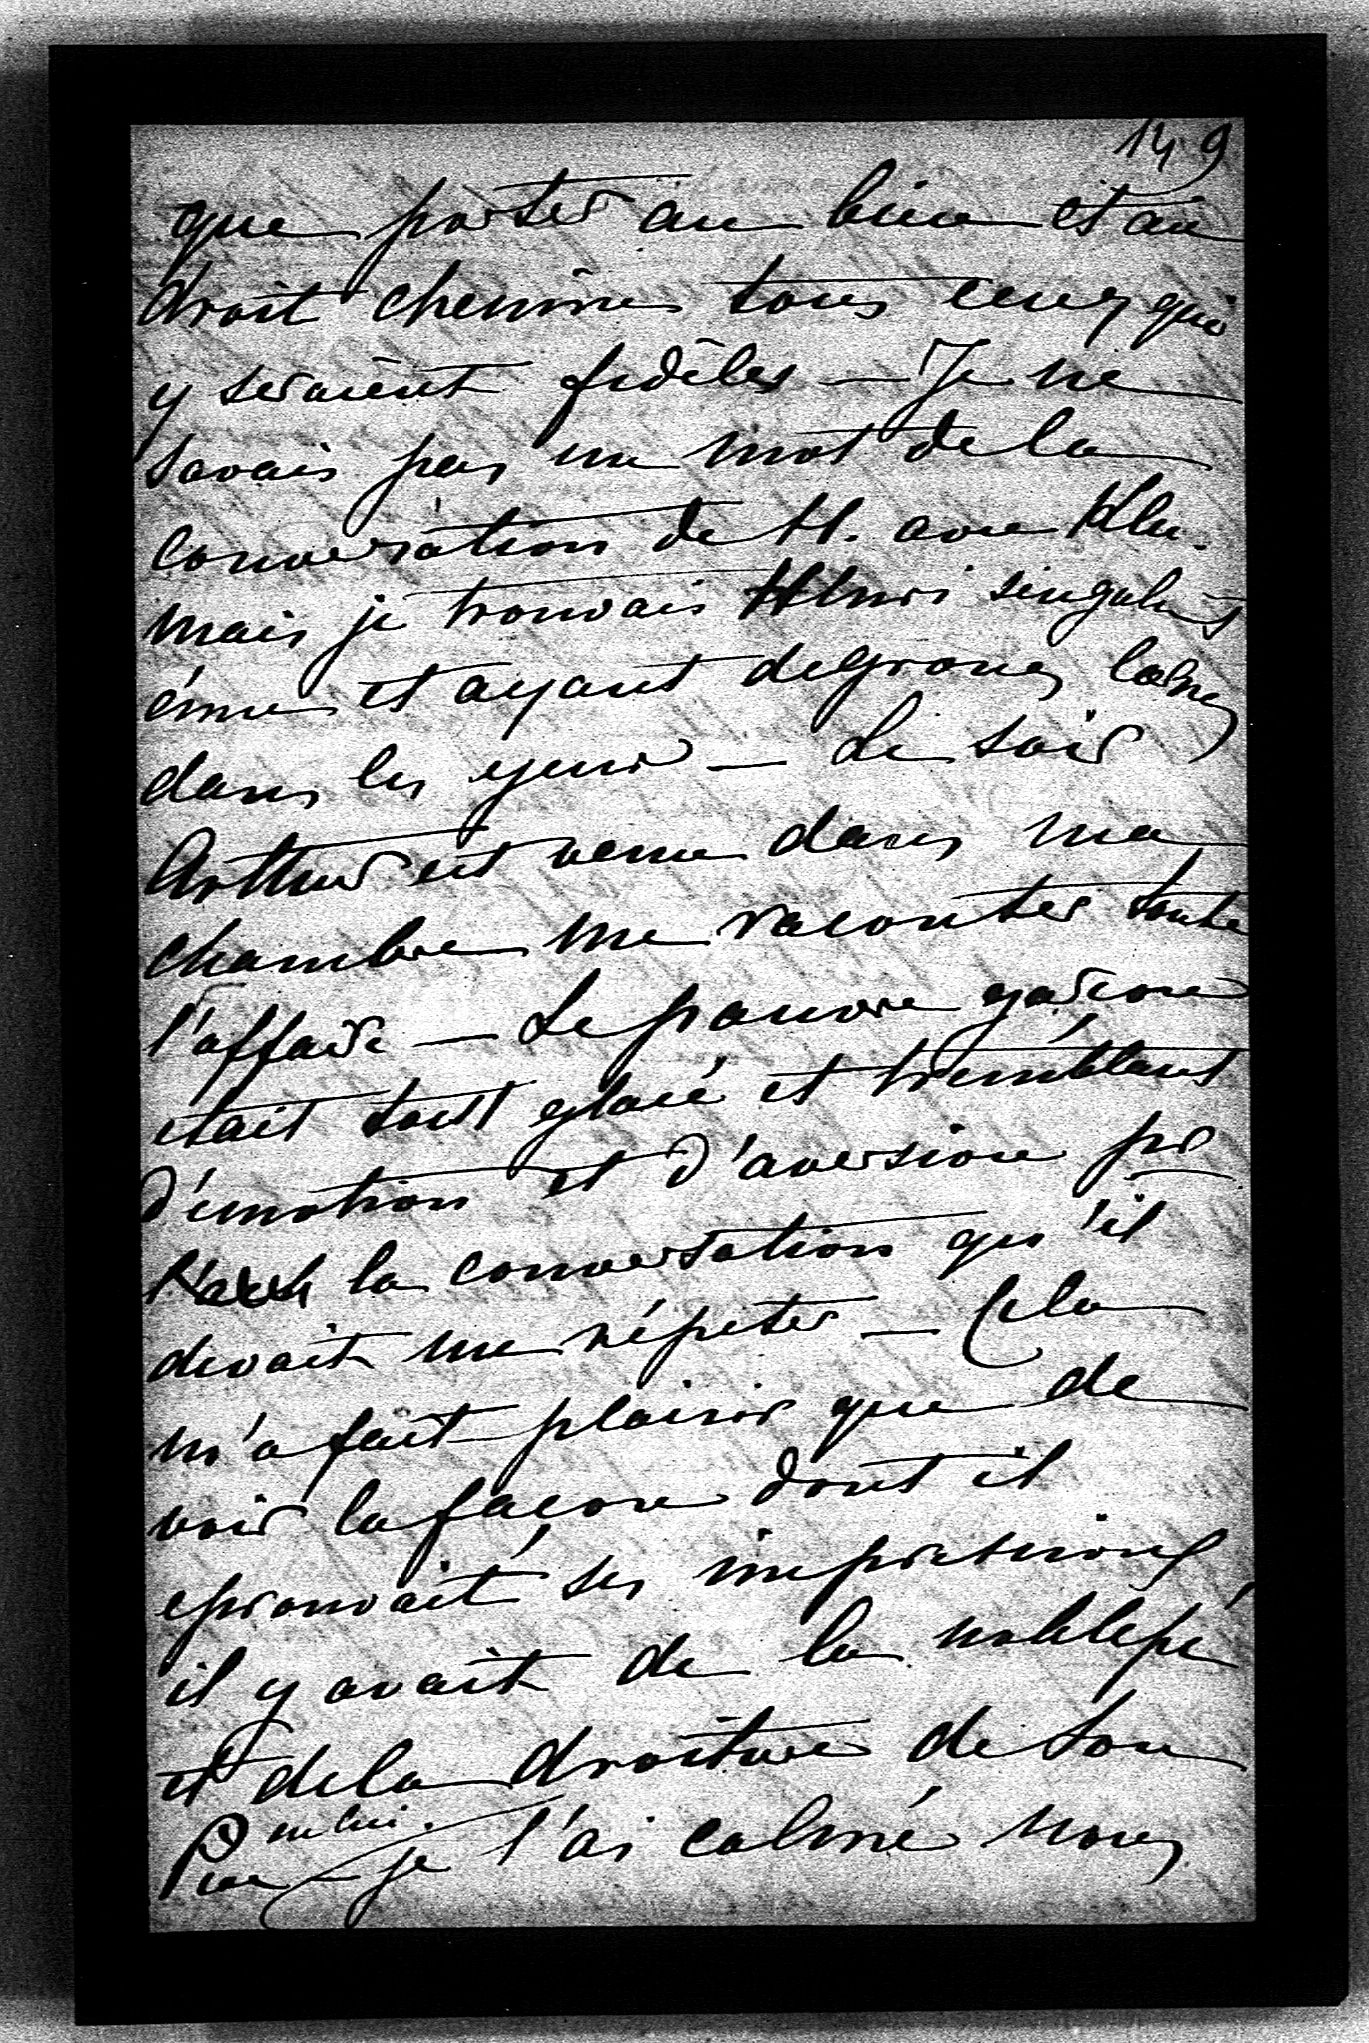 149
que porter au bien et au
droit chemin tous ceux qui
y seraient fidèles — Je ne
savais pas un mot de la
conversation de H. avec Klu.
mais je trouvais Henri singulnt
ému et ayant de grones larmes
dans les yeux — Le soir
Arthur est venu dans ma
chambre me raconter toute
l'affaire — Le pauvre garcon
etait tout glacé et tremblant
d'émotion et d'aversion pr
la conversation qu'il
devait me répeter — Cela
m'a fait plaisir que de
voir la facon dont il
eprouvait ses impressions
il y avait de la noblesse
et de la droiture de son
Père en lui. — je l'ai calmé nous